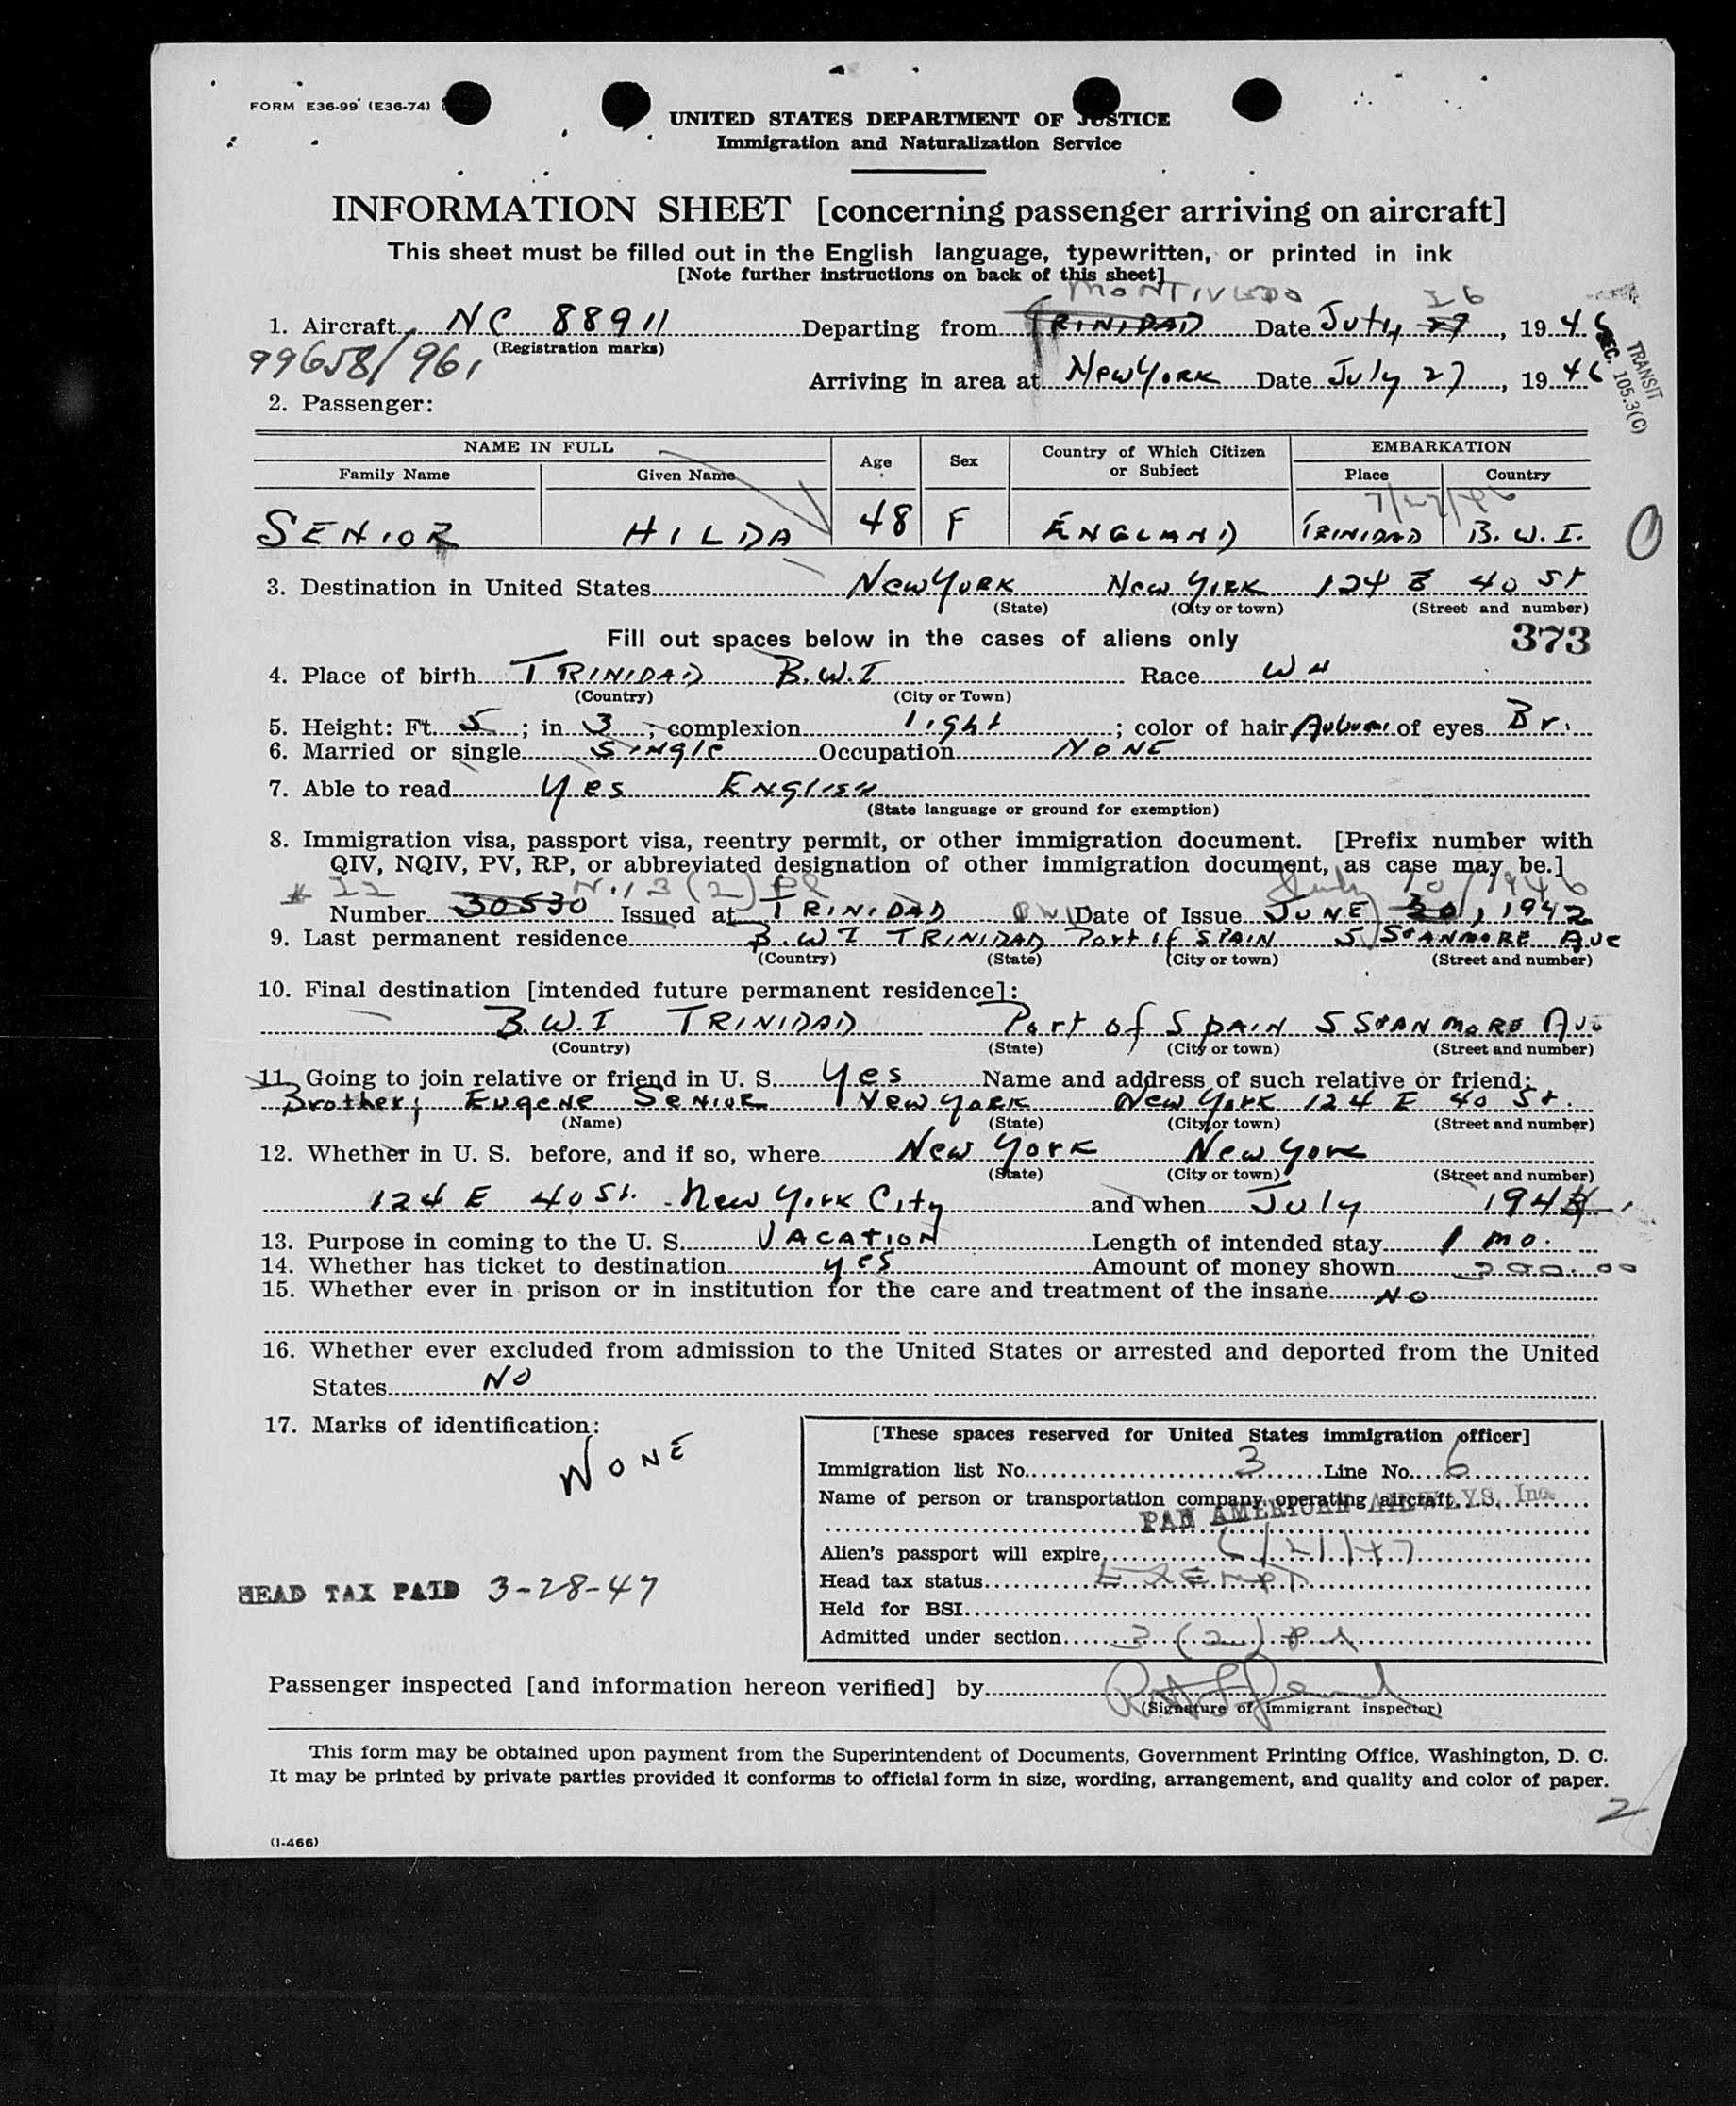 FORM E36-99 (E36-74)
UNITED STATES DEPARTMENT OF JUSTICE
Immigration and Naturalization Service
INFORMATION SHEET [concerning passenger arriving on aircraft]
This sheet must be filled out in the English language, typewritten, or printed in ink
[Note further instructions on back of this sheet]
MONTIVEDO 26
1. Aircraft NC 88911 Departing from TRINIDAD Date July 27, 1946
(Registration marks)
99658/961
Arriving in area at New York Date July 27, 1946
TRANSIT
SEC. 105.3(C)
2. Passenger:
NAME IN FULL Age Sex Country of Which Citizen or Subject EMBARKATION
Family Name Given Name Place Country
7/27/46
SENIOR HILDA 48 F ENGLAND TRINIDAD B.W.I.
0
3. Destination in United States New York New York 124 E 40 St
(State) (City or town) (Street and number)
Fill out spaces below in the cases of aliens only 373
4. Place of birth TRINIDAD B.W.I Race WH
(Country) (City or Town)
5. Height: Ft. 5; in 3; complexion light; color of hair Auburn of eyes Br.
6. Married or single Single Occupation NONE
7. Able to read Yes ENGLISH
(State language or ground for exemption)
8. Immigration visa, passport visa, reentry permit, or other immigration document. [Prefix number with
QIV, NQIV, PV, RP, or abbreviated designation of other immigration document, as case may be.]
# 12 3(2) July 10, 1946
Number 30530 Issued at TRINIDAD BWI Date of Issue JUNE 30, 1942
9. Last permanent residence B.W.I TRINIDAD Port of SPAIN 5 STANMORE Ave
(Country) (State) (City or town) (Street and number)
10. Final destination [intended future permanent residence]:
B.W.I TRINIDAD Port of SPAIN 5 STANMORE Ave
(Country) (State) (City or town) (Street and number)
11. Going to join relative or friend in U. S. Yes Name and address of such relative or friend:
Brother; Eugene Senior New York New York 124 E 40 St.
(Name) (State) (City or town) (Street and number)
12. Whether in U. S. before, and if so, where New York New York
(State) (City or town) (Street and number)
124 E 40 St. New York City and when July 194
13. Purpose in coming to the U. S. VACATION Length of intended stay 1 mo.
14. Whether has ticket to destination yes Amount of money shown 200.00
15. Whether ever in prison or in institution for the care and treatment of the insane NO
16. Whether ever excluded from admission to the United States or arrested and deported from the United
States NO
17. Marks of identification:
NONE
[These spaces reserved for United States immigration officer]
Immigration list No. 3 Line No. 6
Name of person or transportation company operating aircraft
PAN AMERICAN AIRWAYS, Inc.
Alien's passport will expire 6/21/47
Head tax status Exempt
Held for BSI
Admitted under section 3(2)
HEAD TAX PAID 3-28-47
Passenger inspected [and information hereon verified] by
(Signature of immigrant inspector)
This form may be obtained upon payment from the Superintendent of Documents, Government Printing Office, Washington, D. C.
It may be printed by private parties provided it conforms to official form in size, wording, arrangement, and quality and color of paper.
2
(I-466)